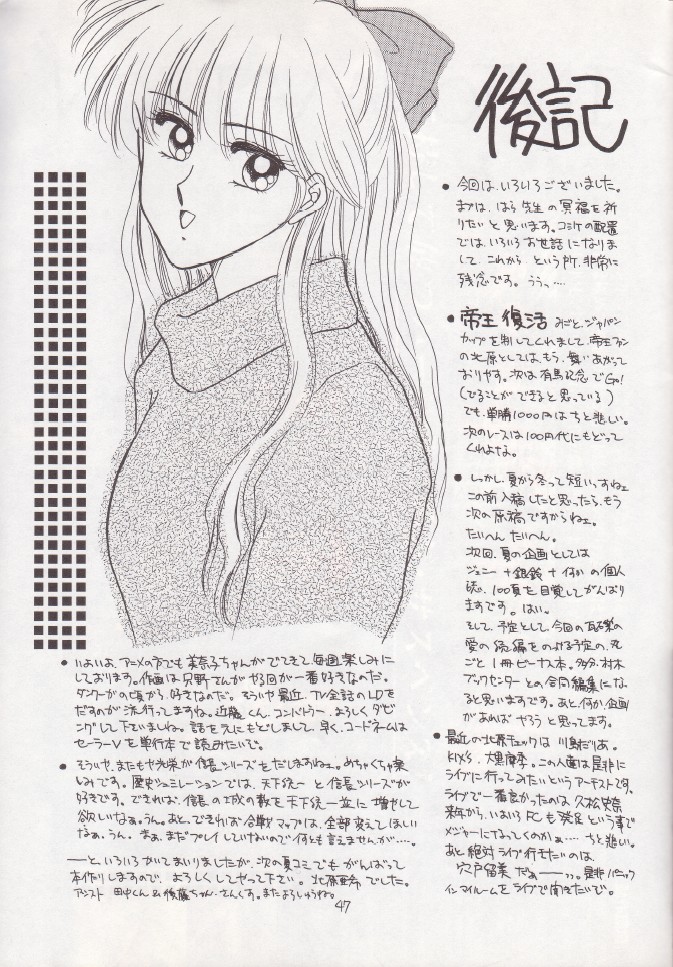 後記
• 今回は、いろいろございました。
まずは、はら先生の冥福を祈
りたいと思います。コミケの配置
では、いろいろお世話になりま
して、これから、という所、非常に
残念です。うぅ、‥‥
• 帝王復活 みごと、ジャパン
カップを制してくれまして、帝王ファン
の北原としては、もう、舞いあがって
おりやす。次は有馬記念でGo!
(でることができると思っている)
でも、単勝1000円はちと悲しい。
次のレースは100円代にもどって
くれよな。
• しかし、夏から冬って短いっすねェ
この前入稿したと思ったら、もう
次の原稿ですからねェ。
たいへんたいへん。
次回、夏の企画としては
ジェニー+銀鈴+何かの個人
誌、100頁を目覚してがんばり
ますです。はい。
そして、予定として、今回の
愛の続編をのっける予定の、丸
ごと1冊ビーナス本。多分、村木
ブックセンターとの合同編集にな
ると思いますです。あと、何か企画
があればやろうと思ってます。
• 最近の北原チェックは川島だりあ。
KIX'S 大黒摩季。この人達は是非に
ライブに行ってみたいというアーチストです。
ライブで一番良かったのは久松史奈
来年から、いよいよFCも発足という事で
メジャーになってくのかぁ‥‥ちと悲しい。
あと絶対ライブ行きたいのは、
宍戸留美だぁーーッッ。是非パニック
インマイルームをライブで聞きたいで。
• いよいよ、アニメの方でも美奈子ちゃんがでてきて毎回楽しみに
しております。作画は只野さんがやる回が一番好きなのだ。
ダンクーガの頃から、好きなのだ。そういや最近、TV全話のLDを
だすのが流行ってますね。近藤くん、コンバトラー、よろしくダビ
ングして下さいましね。話をもとにもどしまして、早く、コードネームは
セーラーVを単行本で読みたいぞ。
• そういや、またもや光栄が信長シリーズをだしますねェ。めちゃくちゃ楽
しみです。歴史シミュレーションでは、天下統一と信長シリーズが
好きです。できれば、信長の城の数を天下統一並に増やして
欲しいなぁ。うん。あと、できれば合戦マップは、全部変えてほしい
なぁ、うん。まぁ、まだプレイしていないので何とも言えませんが‥‥。
――と、いろいろかいてまいりましたが、次の夏コミでもがんばって
本作りしますので、よろしくしてやって下さい。北原亜希でした。
アシスト 田中くん&後藤ちゃん、さんくす。またよろしゅうね。
47